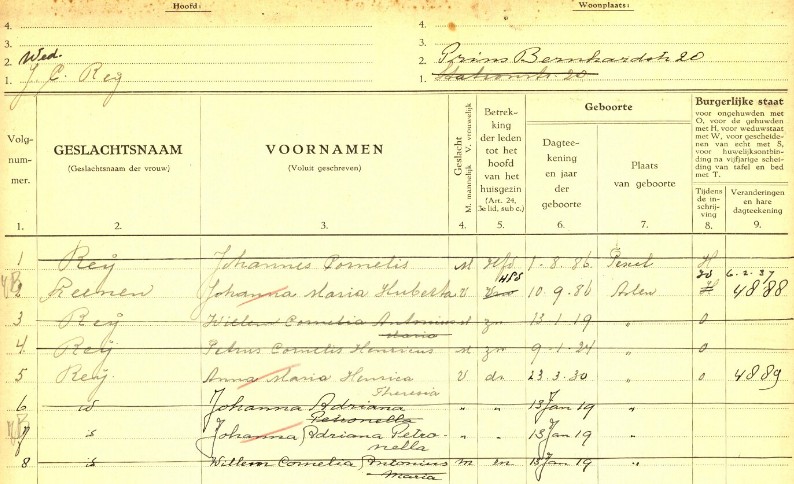 Hoofd: Woonplaats:
4. 4.
3. 3.
2. Wed. 2. Prins Bernhardstr 20
1. J. C. Reij 1. Stationstr. 20
Volg-
num-
mer.
GESLACHTSNAAM
(Geslachtsnaam der vrouw)
VOORNAMEN
(Voluit geschreven)
Geslacht
M. mannelijk V. vrouwelijk
Betrek-
king
der leden
tot het
hoofd
van het
huisgezin
(Art. 24,
3e lid, sub c.)
Geboorte
Dagtee-
kening
en jaar
der
geboorte
Plaats
van geboorte
Burgerlijke staat
voor ongehuwden met
O, voor de gehuwden
met H, voor weduwstaat
met W, voor gescheide-
nen van echt met S,
voor huwelijksontbin-
ding na vijfjarige schei-
ding van tafel en bed
met T.
Tijdens
de in-
schrij-
ving
Veranderingen
en hare
dagteekening
1. 2. 3. 4. 5. 6. 7. 8. 9.
1 Reij Johannes Cornelis M Hfd 1-8-86 H
Hfd 6-2-37
2 Johanna Maria Huberta V 10-9-86 H 4888
3 Reij Willem Cornelia Antonius M zn 13-1-19 " O
Maria
4 Reij Petrus Cornelis Henricus M zn 9-1-24 " O
5 Reij Anna Maria Henrica V dr 23-3-30 " O 4889
Theresia
6 Johanna Adriana " " 13 Jan 19 "
Petronella
7 Johanna Adriana Petro- " " 13 Jan 19 "
nella
8 Willem Cornelia Antonius m zn 13 Jan 19 "
Maria